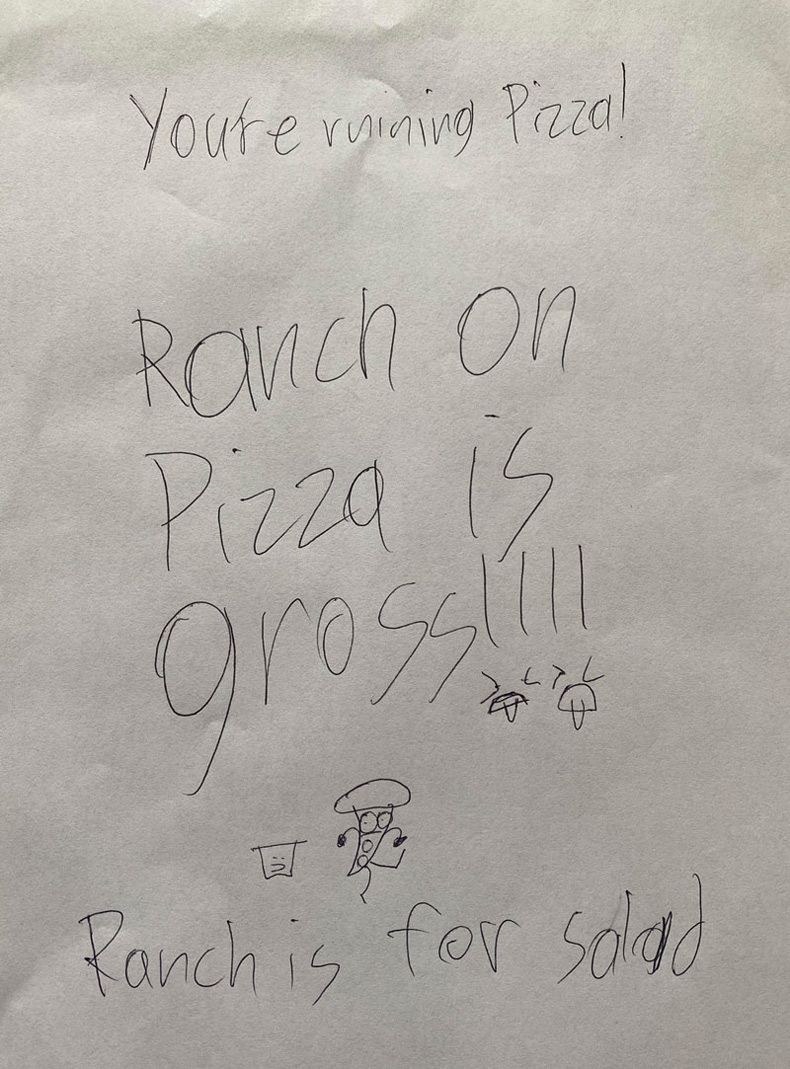 You're ruining Pizza!
Ranch on
Pizza is
gross!!!!
Ranch is for salad